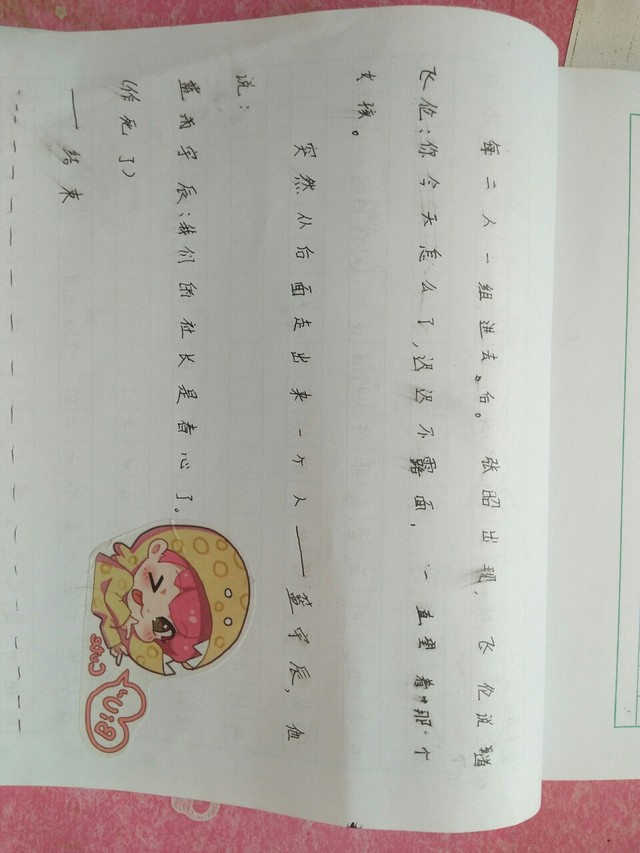 每二人一组进去。后。张昭出现,飞伦说道
飞伦:你今天怎么了,迟迟不露面,一直望着那个
女孩。
突然从后面走出来一个人——宇辰,他
说:
宇辰:我们的社长是春心了。
(作死了)
——结束